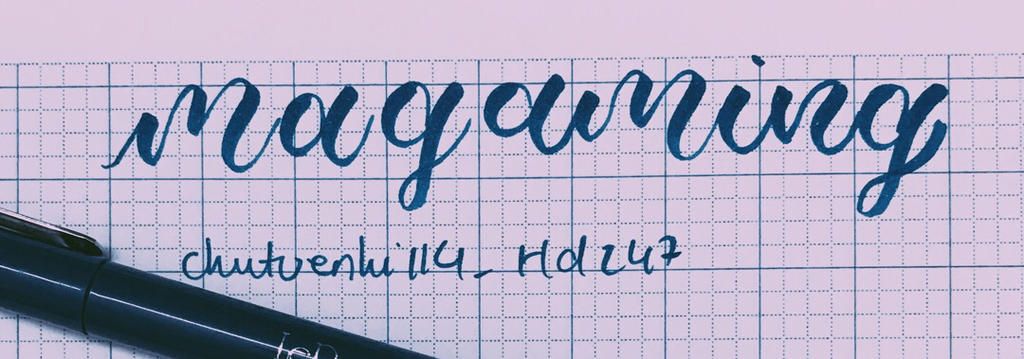 magaming
chutuenhi114_Hd247